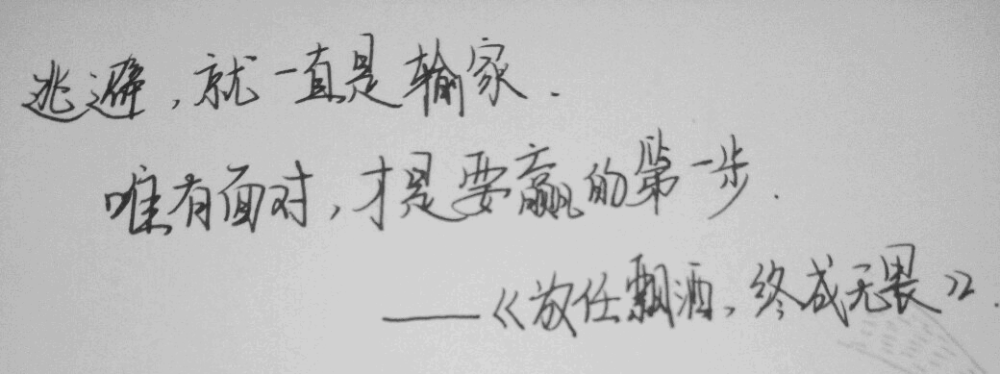 逃避，就一直是输家.
唯有面对，才是要赢的第一步.
——《放任飘洒、终成无畏》.